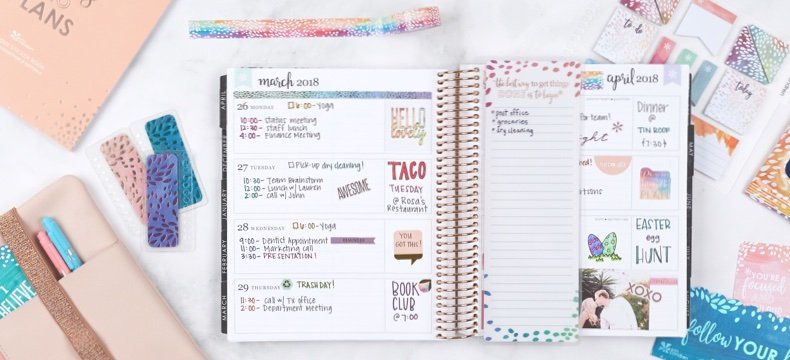 PLANS
march 2018
26 MONDAY
6:00- Yoga
10:00- Status meeting
12:30- staff lunch
4:00- Finance Meeting
HELLO
lovely
27 TUESDAY
Pick-up dry cleaning!
10:30- Team Brainstorm
12:00- Lunch w/ Lauren
2:00- Call w/ John
AWESOME
TACO
TUESDAY
@ Rosa's
Restaurant
28 WEDNESDAY
6:00- Yoga
9:00- Dentist Appointment
11:00- Marketing call
3:30- PRESENTATION!
YOU
GOT THIS!
29 THURSDAY
TRASH DAY!
11:30- Call w/ TX office
2:00- Department Meeting
BOOK
CLUB
@ 7:00
APRIL
JANUARY
FEBRUARY
MARCH
the best way to get things
DONE is to begin
*post office
*groceries
*dry cleaning
april 2018
for team!
Dinner
@
TIN ROOF
(7:30)
EASTER
egg
HUNT
XOXO
MAY
to-do
today
BELIEVE
YOU'RE
focused
follow YOUR